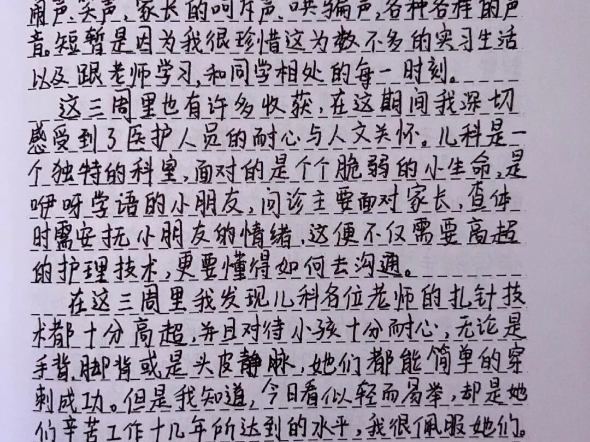 闹声、笑声,家长的呵斥声、哄骗声,各种各样的声
音。短暂是因为我很珍惜这为数不多的实习生活
以及跟老师学习,和同学相处的每一时刻。
这三周里也有许多收获,在这期间我深切
感受到了医护人员的耐心与人文关怀。儿科是一
个独特的科室,面对的是个个脆弱的小生命,是
咿呀学语的小朋友,问诊主要面对家长,查体
时需安抚小朋友的情绪,这便不仅需要高超
的护理技术,更要懂得如何去沟通。
在这三周里我发现儿科各位老师的扎针技
术都十分高超,并且对待小孩十分耐心,无论是
手背,脚背或是头皮静脉,她们都能简单的穿
刺成功。但是我知道,今日看似轻而易举,却是她
们辛苦工作十几年所达到的水平,我很佩服她们。